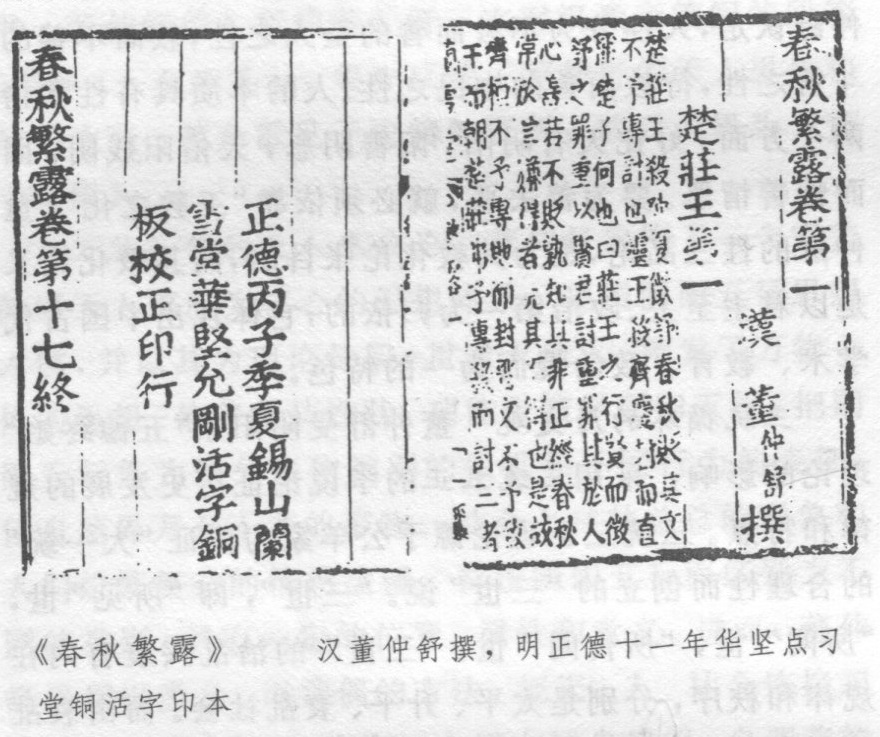 春秋繁露卷第
漢 董仲舒 撰
楚莊王第一
楚莊王殺陳夏徵舒春秋貶其文
不予專討也靈王殺齊慶封而直
稱楚子何也曰莊王之行賢而徵
舒之罪重以賢君討重罪其於人
心善若不貶孰知其非正經春秋
常於其嫌得者見其不得也是故
齊桓不予專地而封晉文不予致
王而朝楚莊弗予專殺而討三者
正德丙子季夏錫山蘭
雪堂華堅允剛活字銅
板校正印行
春秋繁露卷第十七終
《春秋繁露》 汉董仲舒撰，明正德十一年华坚点习
堂铜活字印本